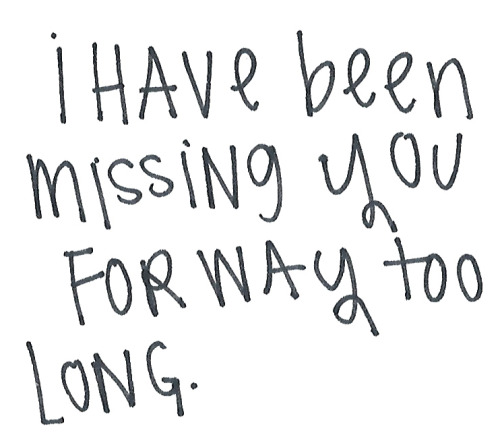 i HAVe been
missiNg you
FOR WAy too
LONG.